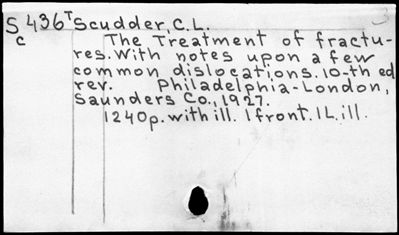 S 436 T Scudder, C. L.
c
The Treatment of fractu-
res. With notes upon a few
common dislocations. 10-th ed
rev. Philadelphia-London,
Saunders Co., 1927.
1240p. with ill. 1 front. 1 L. ill.